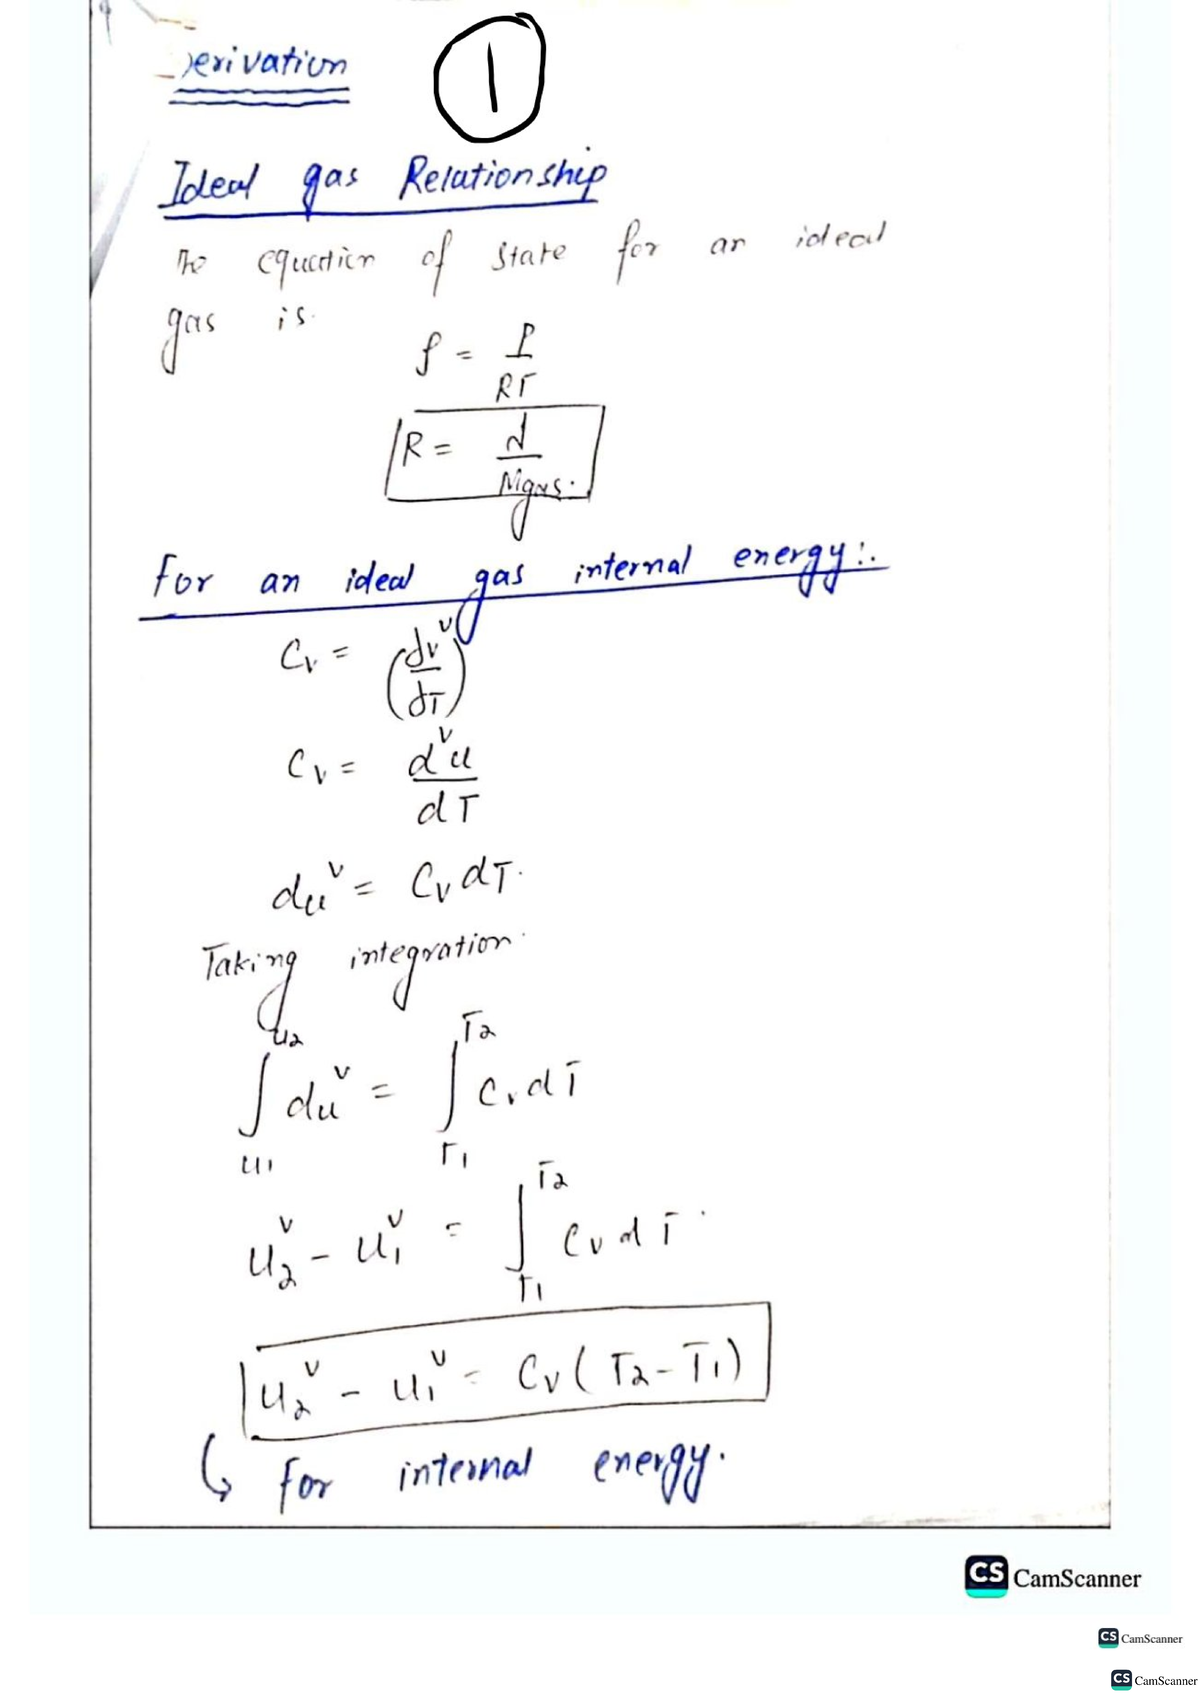 Derivation
1
Ideal gas Relationship
The equation of state for an ideal
gas is.
ρ = P
RT
R = 
Mgas.
for an ideal gas internal energy:.
Cv = (dǔ
dT)
Cv = dǔ
dT
dǔ = Cv dT.
Taking integration.
u2 T2
∫ dǔ = ∫ Cv dT
u1 T1
T2
ǔ2 - ǔ1 = ∫ Cv dT
T1
ǔ2 - ǔ1 = Cv (T2 - T1)
↳ for internal energy.
CS CamScanner
CS CamScanner
CS CamScanner